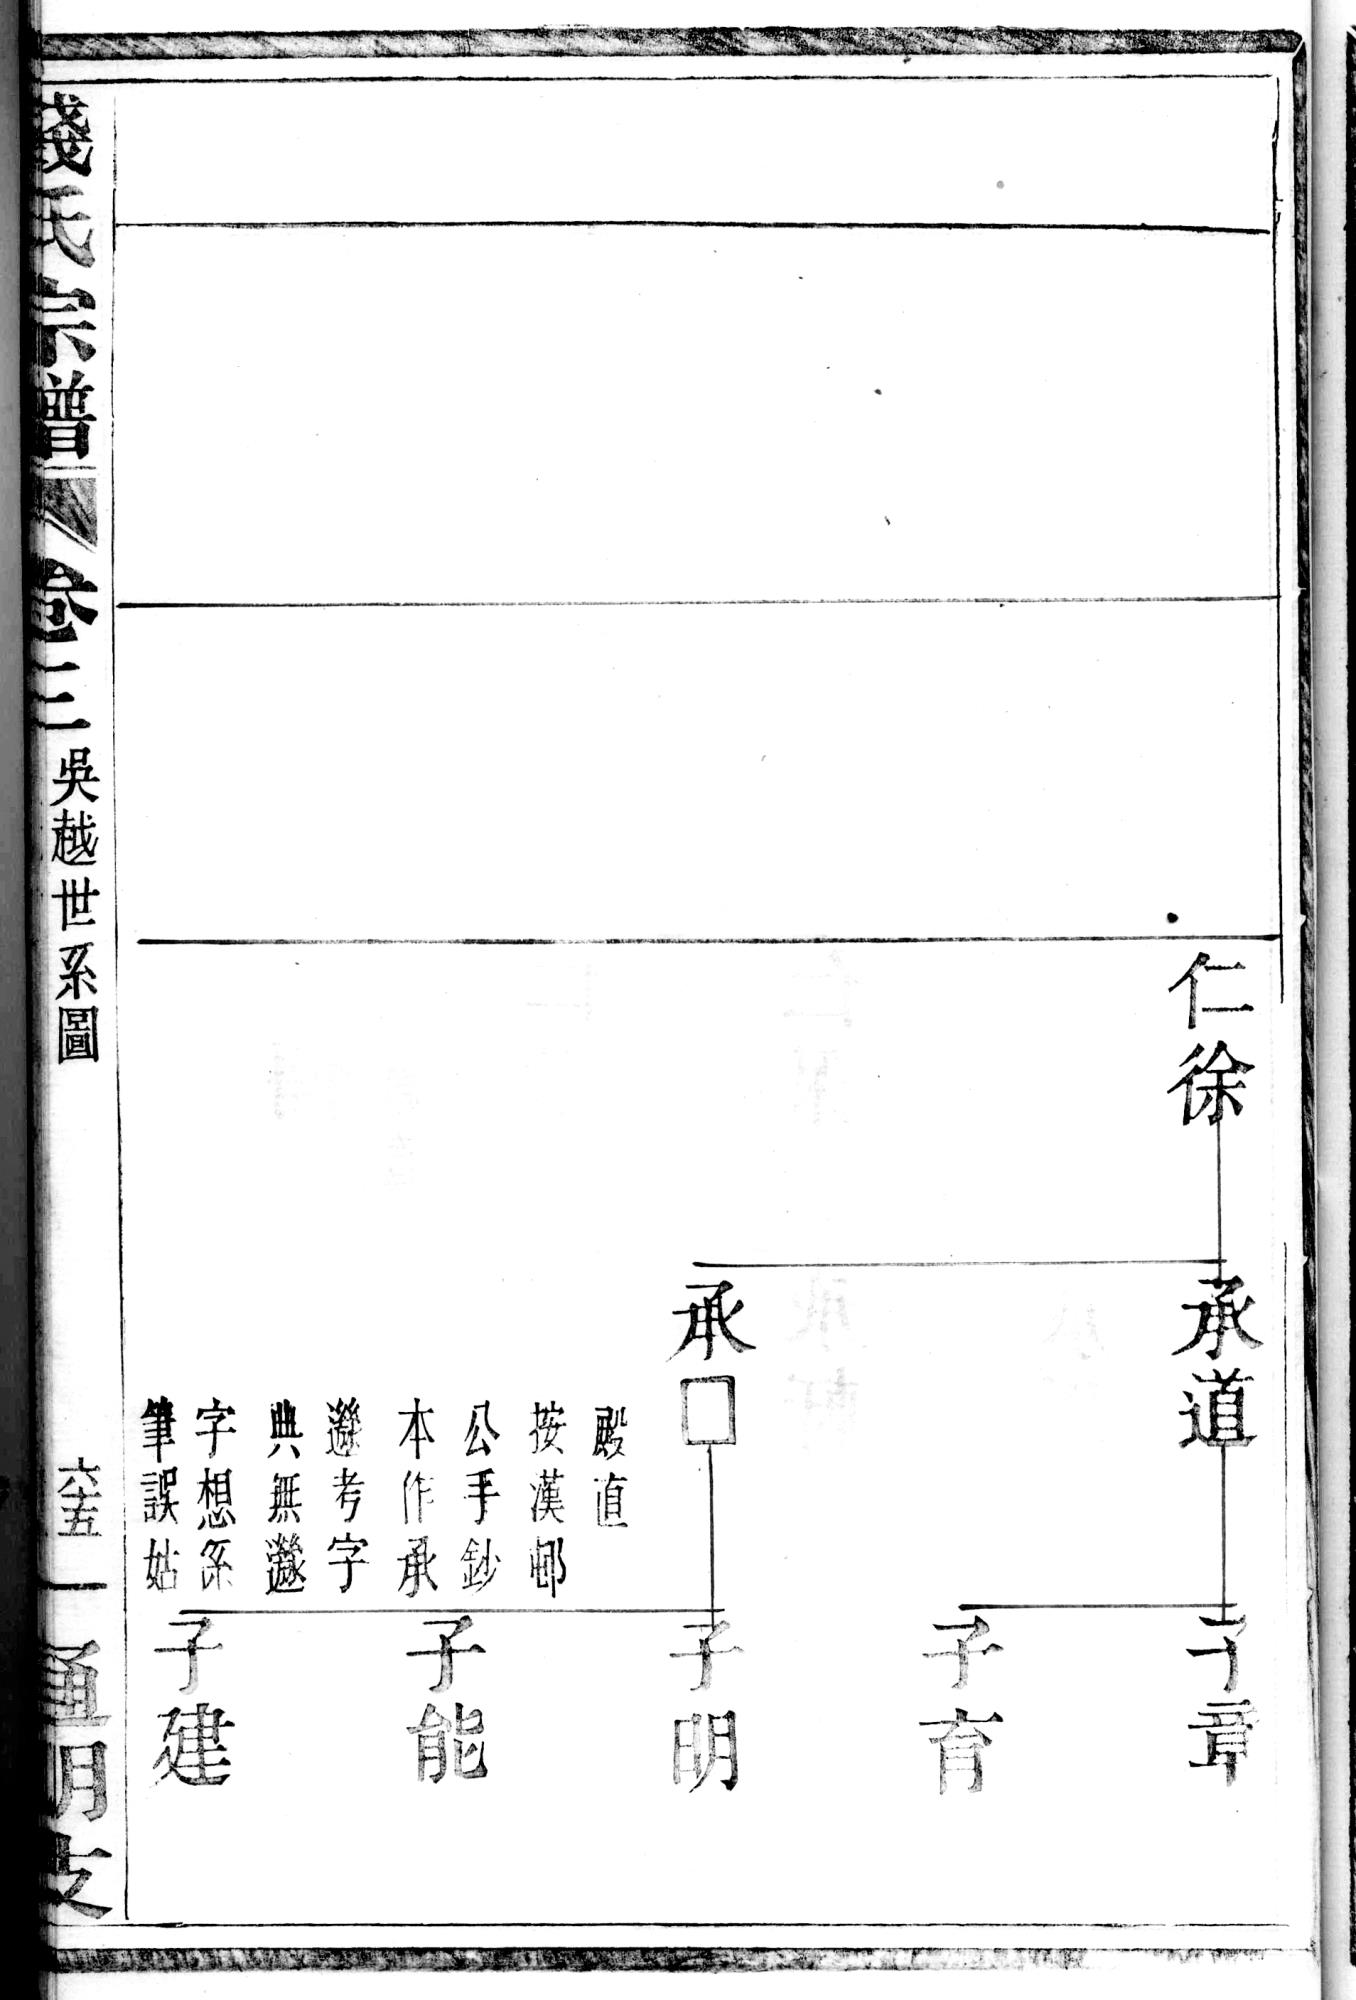 仁徐
承道
子章
子育
承□
殿直
按漢邨
公手鈔
本作承
邎考字
典無邎
字想系
筆誤姑
子明
子能
子建
錢氏宗譜
卷三
吳越世系圖
六十五
通明支